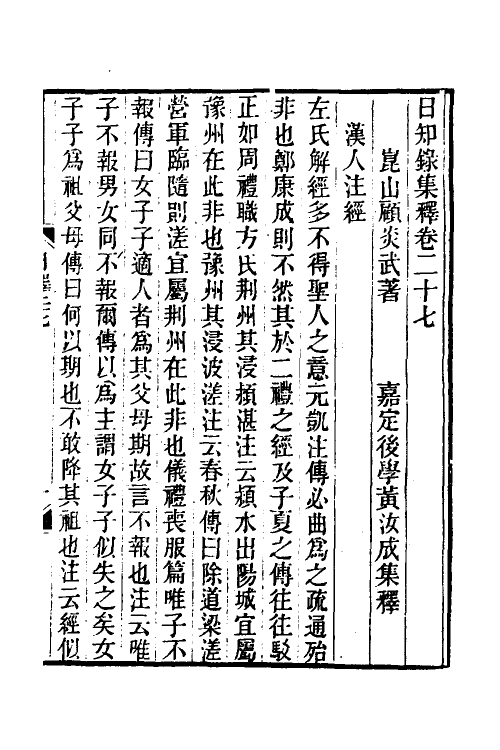 日知錄集釋卷二十七
崑山顧炎武著　嘉定後學黃汝成集釋
漢人注經
左氏解經多不得聖人之意元凱注傳必曲為之疏通殆
非也鄭康成則不然其於二禮之經及子夏之傳往往駁
正如周禮職方氏荆州其浸潁湛注云潁水出陽城宜屬
豫州在此非也豫州其浸波溠注云春秋傳曰除道梁溠
營軍臨隨則溠宜屬荆州在此非也儀禮喪服篇唯子不
報傳曰女子子適人者為其父母期故言不報也注云唯
子不報男女同不報爾傳以為主謂女子子似失之矣女
子子為祖父母傳曰何以期也不敢降其祖也注云經似